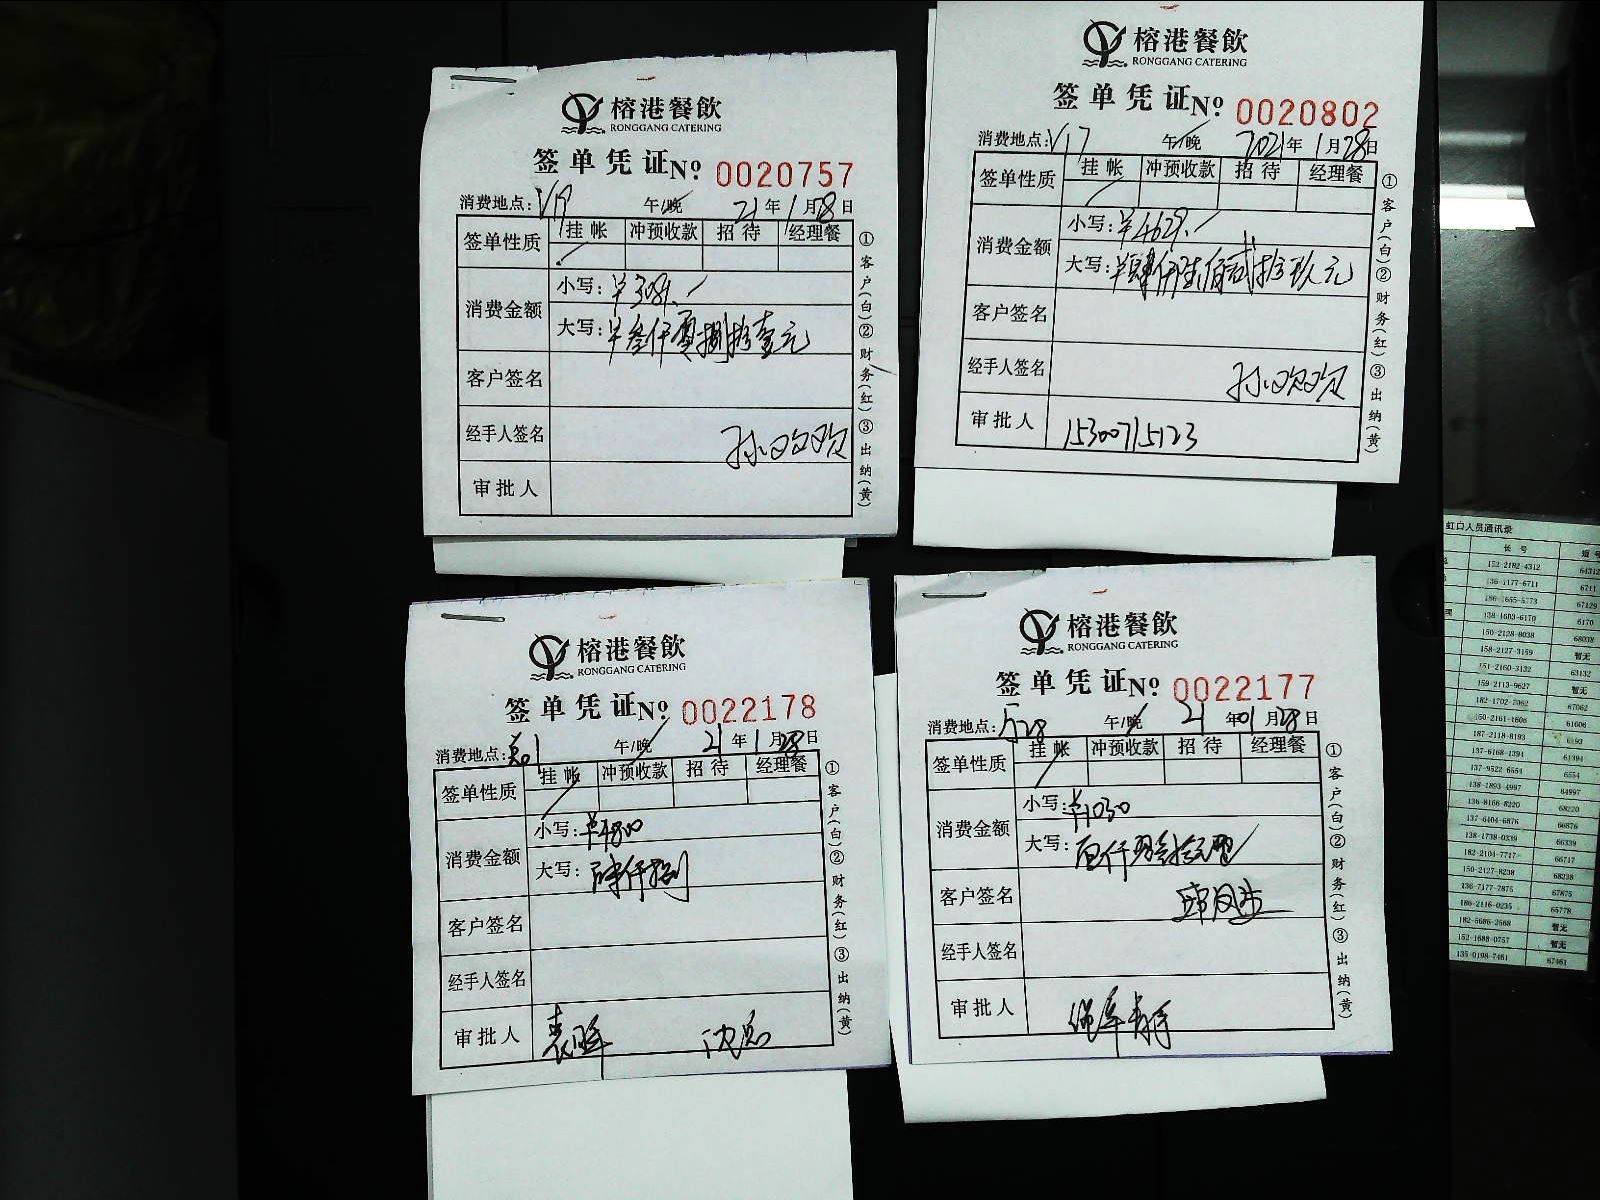 榕港餐飲
RONGGANG CATERING
签单凭证 Nº 0020757
消费地点: V19 午/晚 21年1月28日
签单性质 挂帐 冲预收款 招待 经理餐
消费金额
小写: ¥3081.
大写: ¥叁仟零捌拾壹元
客户签名
经手人签名 孙欢欢
审批人
①客户(白)②财务(红)③出纳(黄)
榕港餐飲
RONGGANG CATERING
签单凭证 Nº 0020802
消费地点: V17 午/晚 2021年1月28日
签单性质 挂帐 冲预收款 招待 经理餐
消费金额
小写: ¥4629.
大写: ¥肆仟陆佰贰拾玖元
客户签名
经手人签名 孙欢欢
审批人 15300715123
①客户(白)②财务(红)③出纳(黄)
榕港餐飲
RONGGANG CATERING
签单凭证 Nº 0022178
消费地点: 午/晚 21年1月28日
签单性质 挂帐 冲预收款 招待 经理餐
消费金额
小写: ¥4800
大写:
客户签名
经手人签名
审批人 袁晖 沈总
①客户(白)②财务(红)③出纳(黄)
榕港餐飲
RONGGANG CATERING
签单凭证 Nº 0022177
消费地点: 厅28 午/晚 21年01月28日
签单性质 挂帐 冲预收款 招待 经理餐
消费金额
小写: ¥1030
大写:
客户签名
经手人签名
审批人
①客户(白)②财务(红)③出纳(黄)
虹口人员通讯录
长号 短号
152-2182-4312 64312
136-1177-6711 6711
67129
138-1603-6170 6170
150-2128-8038 68038
158-2127-3159 暂无
151-2160-3132 63132
159-2113-9627 暂无
182-1702-7062 67062
150-2161-1606 61606
187-2118-8193
137-6168-1394 61394
137-9522-6554 6554
138-1893-4997 64997
136-8166-8220 68220
137-6404-6876 66876
138-1738-0339 66339
182-2104-7717 66717
150-2127-8238 68238
136-7177-7875 67875
186-2116-0235 65778
182-5686-2568 暂无
152-1688-0757 暂无
135-0198-7461 67461